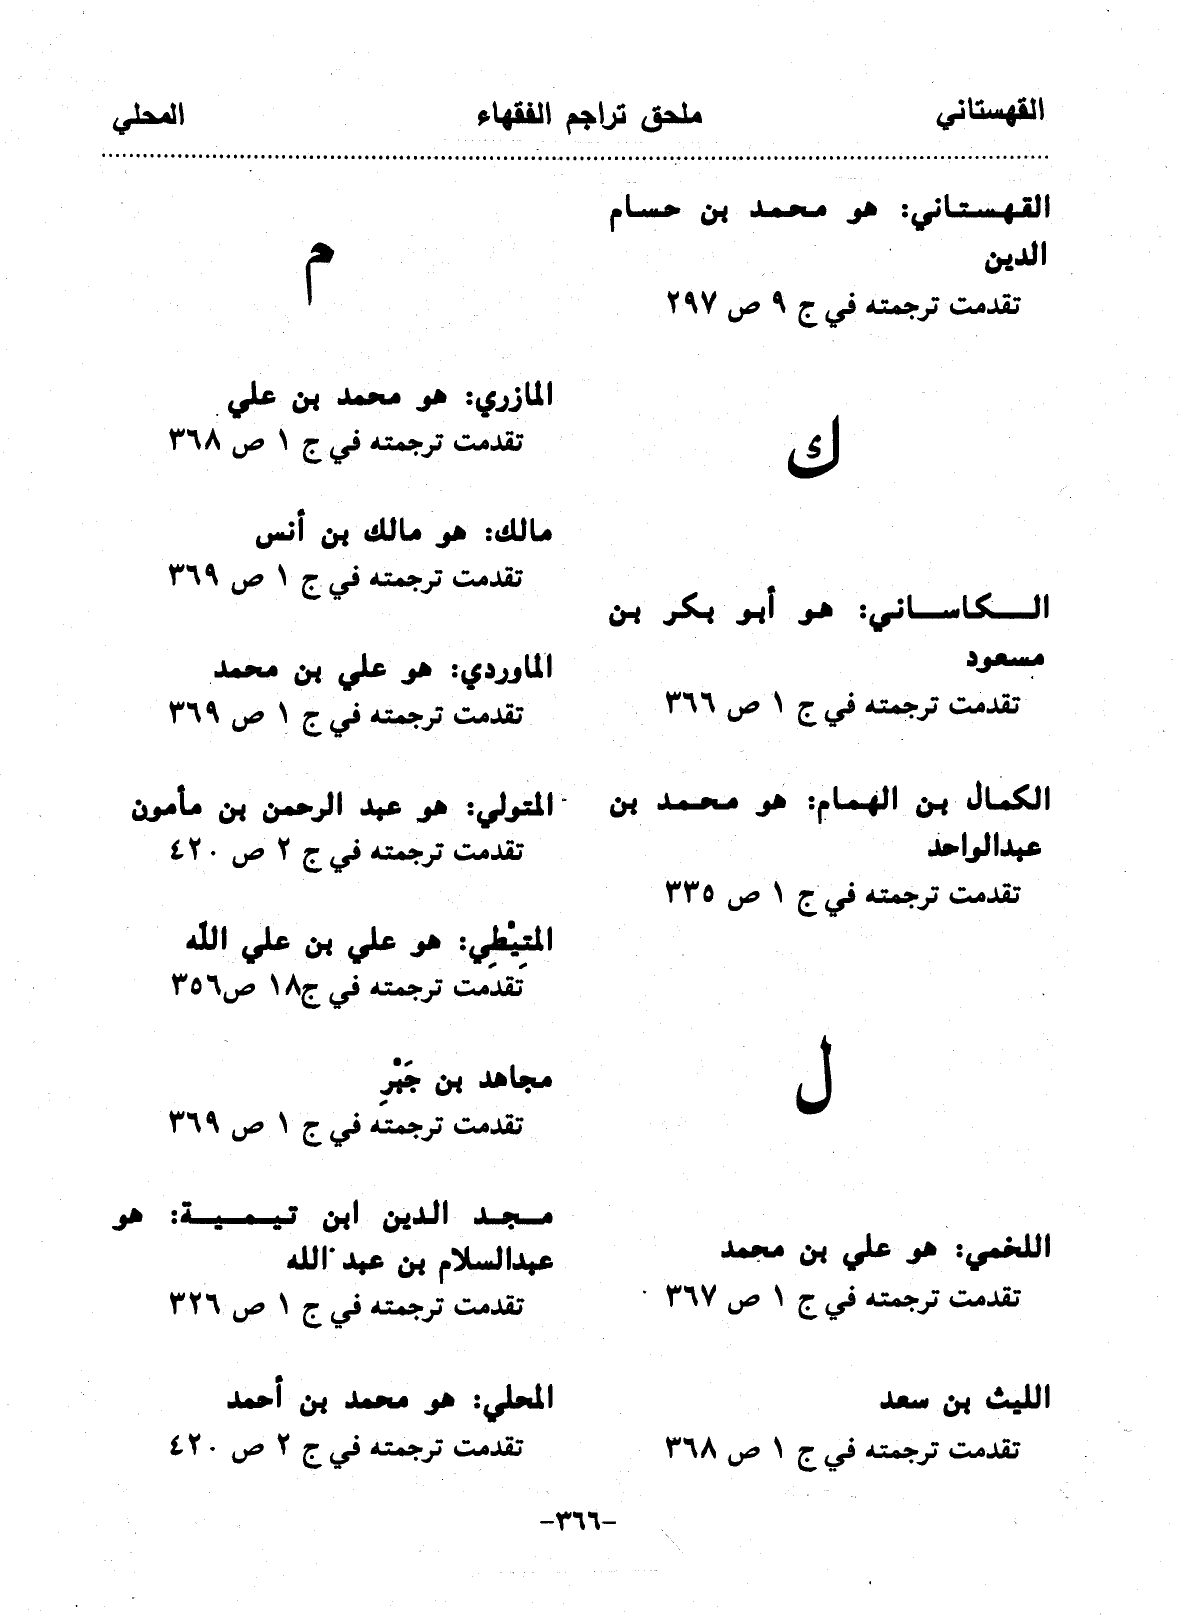 القهستاني
ملحق تراجم الفقهاء
المحلي
القهستاني: هو محمد بن حسام
الدين
تقدمت ترجمته في ج ٩ ص ٢٩٧
ك
الكاساني: هو أبو بكر بن
مسعود
تقدمت ترجمته في ج ١ ص ٣٦٦
الكمال بن الهمام: هو محمد بن
عبدالواحد
تقدمت ترجمته في ج ١ ص ٣٣٥
ل
اللخمي: هو علي بن محمد
تقدمت ترجمته في ج ١ ص ٣٦٧
الليث بن سعد
تقدمت ترجمته في ج ١ ص ٣٦٨
م
المازري: هو محمد بن علي
تقدمت ترجمته في ج ١ ص ٣٦٨
مالك: هو مالك بن أنس
تقدمت ترجمته في ج ١ ص ٣٦٩
الماوردي: هو علي بن محمد
تقدمت ترجمته في ج ١ ص ٣٦٩
المتولي: هو عبد الرحمن بن مأمون
تقدمت ترجمته في ج ٢ ص ٤٢٠
المتِيْطِي: هو علي بن علي اللّه
تقدمت ترجمته في ج١٨ ص٣٥٦
مجاهد بن جَبْرِ
تقدمت ترجمته في ج ١ ص ٣٦٩
مجد الدين ابن تيمية: هو
عبدالسلام بن عبد الله
تقدمت ترجمته في ج ١ ص ٣٢٦
المحلي: هو محمد بن أحمد
تقدمت ترجمته في ج ٢ ص ٤٢٠
-٣٦٦-